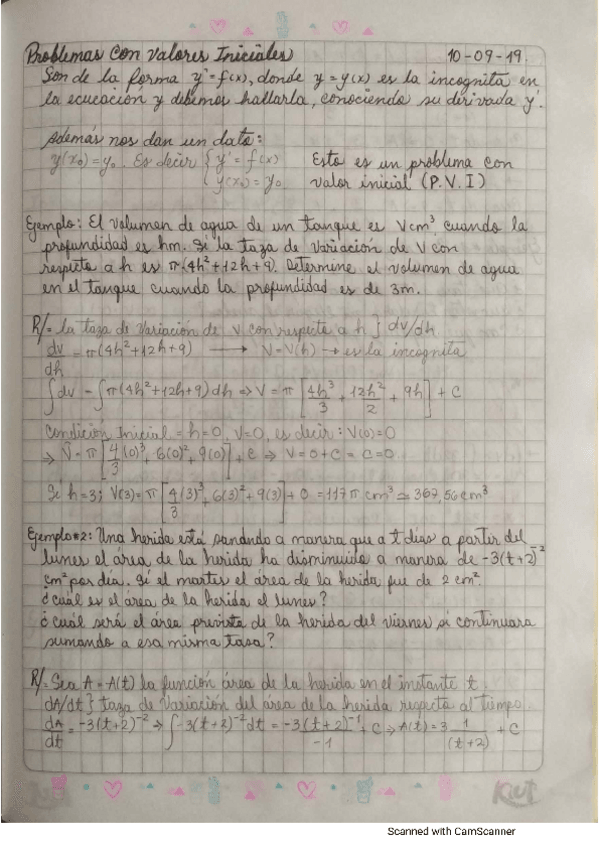 Problemas con Valores Iniciales 10-09-19.
Son de la forma y' = f(x), donde y = y(x) es la incognita en
la ecuación y debemos hallarla, conociendo su derivada y'.
Además nos dan un dato:
y(x₀) = y₀. Es decir { y' = f(x) Esto es un problema con
{ y(x₀) = y₀ valor inicial (P.V.I)
Ejemplo: El volumen de agua de un tanque es V cm³ cuando la
profundidad es hm. Si la taza de variación de V con
respecto a h es π(4h²+12h+9). Determine el volumen de agua
en el tanque cuando la profundidad es de 3m.
R/= la taza de variación de V con respecto a h } dv/dh
dv/dh = π(4h²+12h+9) → V=V(h) → es la incognita
∫dv = ∫π(4h²+12h+9)dh ⇒ V = π [4h³/3 + 12h²/2 + 9h] + C
Condición Inicial = h=0, V=0, es decir: V(0)=0
⇒ V = π [4/3(0)³ + 6(0)² + 9(0)] + C ⇒ V = 0 + C = C = 0
Si h=3; V(3) = π [4/3(3)³ + 6(3)² + 9(3)] + 0 = 117π cm³ ≃ 367,56 cm³
Ejemplo#2: Una herida está sanando a manera que a t días a partir del
lunes el área de la herida ha disminuido a manera de -3(t+2)⁻²
cm² por día. Si el martes el área de la herida fue de 2 cm².
¿cuál es el área de la herida el lunes?
¿cuál será el área prevista de la herida del viernes si continuara
sumando a esa misma tasa?
R/= Sea A = A(t) la función área de la herida en el instante t.
dA/dt } taza de variación del área de la herida respecto al tiempo
dA/dt = -3(t+2)⁻² ⇒ ∫-3(t+2)⁻²dt = -3(t+2)⁻¹/-1 + C ⇒ A(t) = 3 1/(t+2) + C
Kiut
Scanned with CamScanner